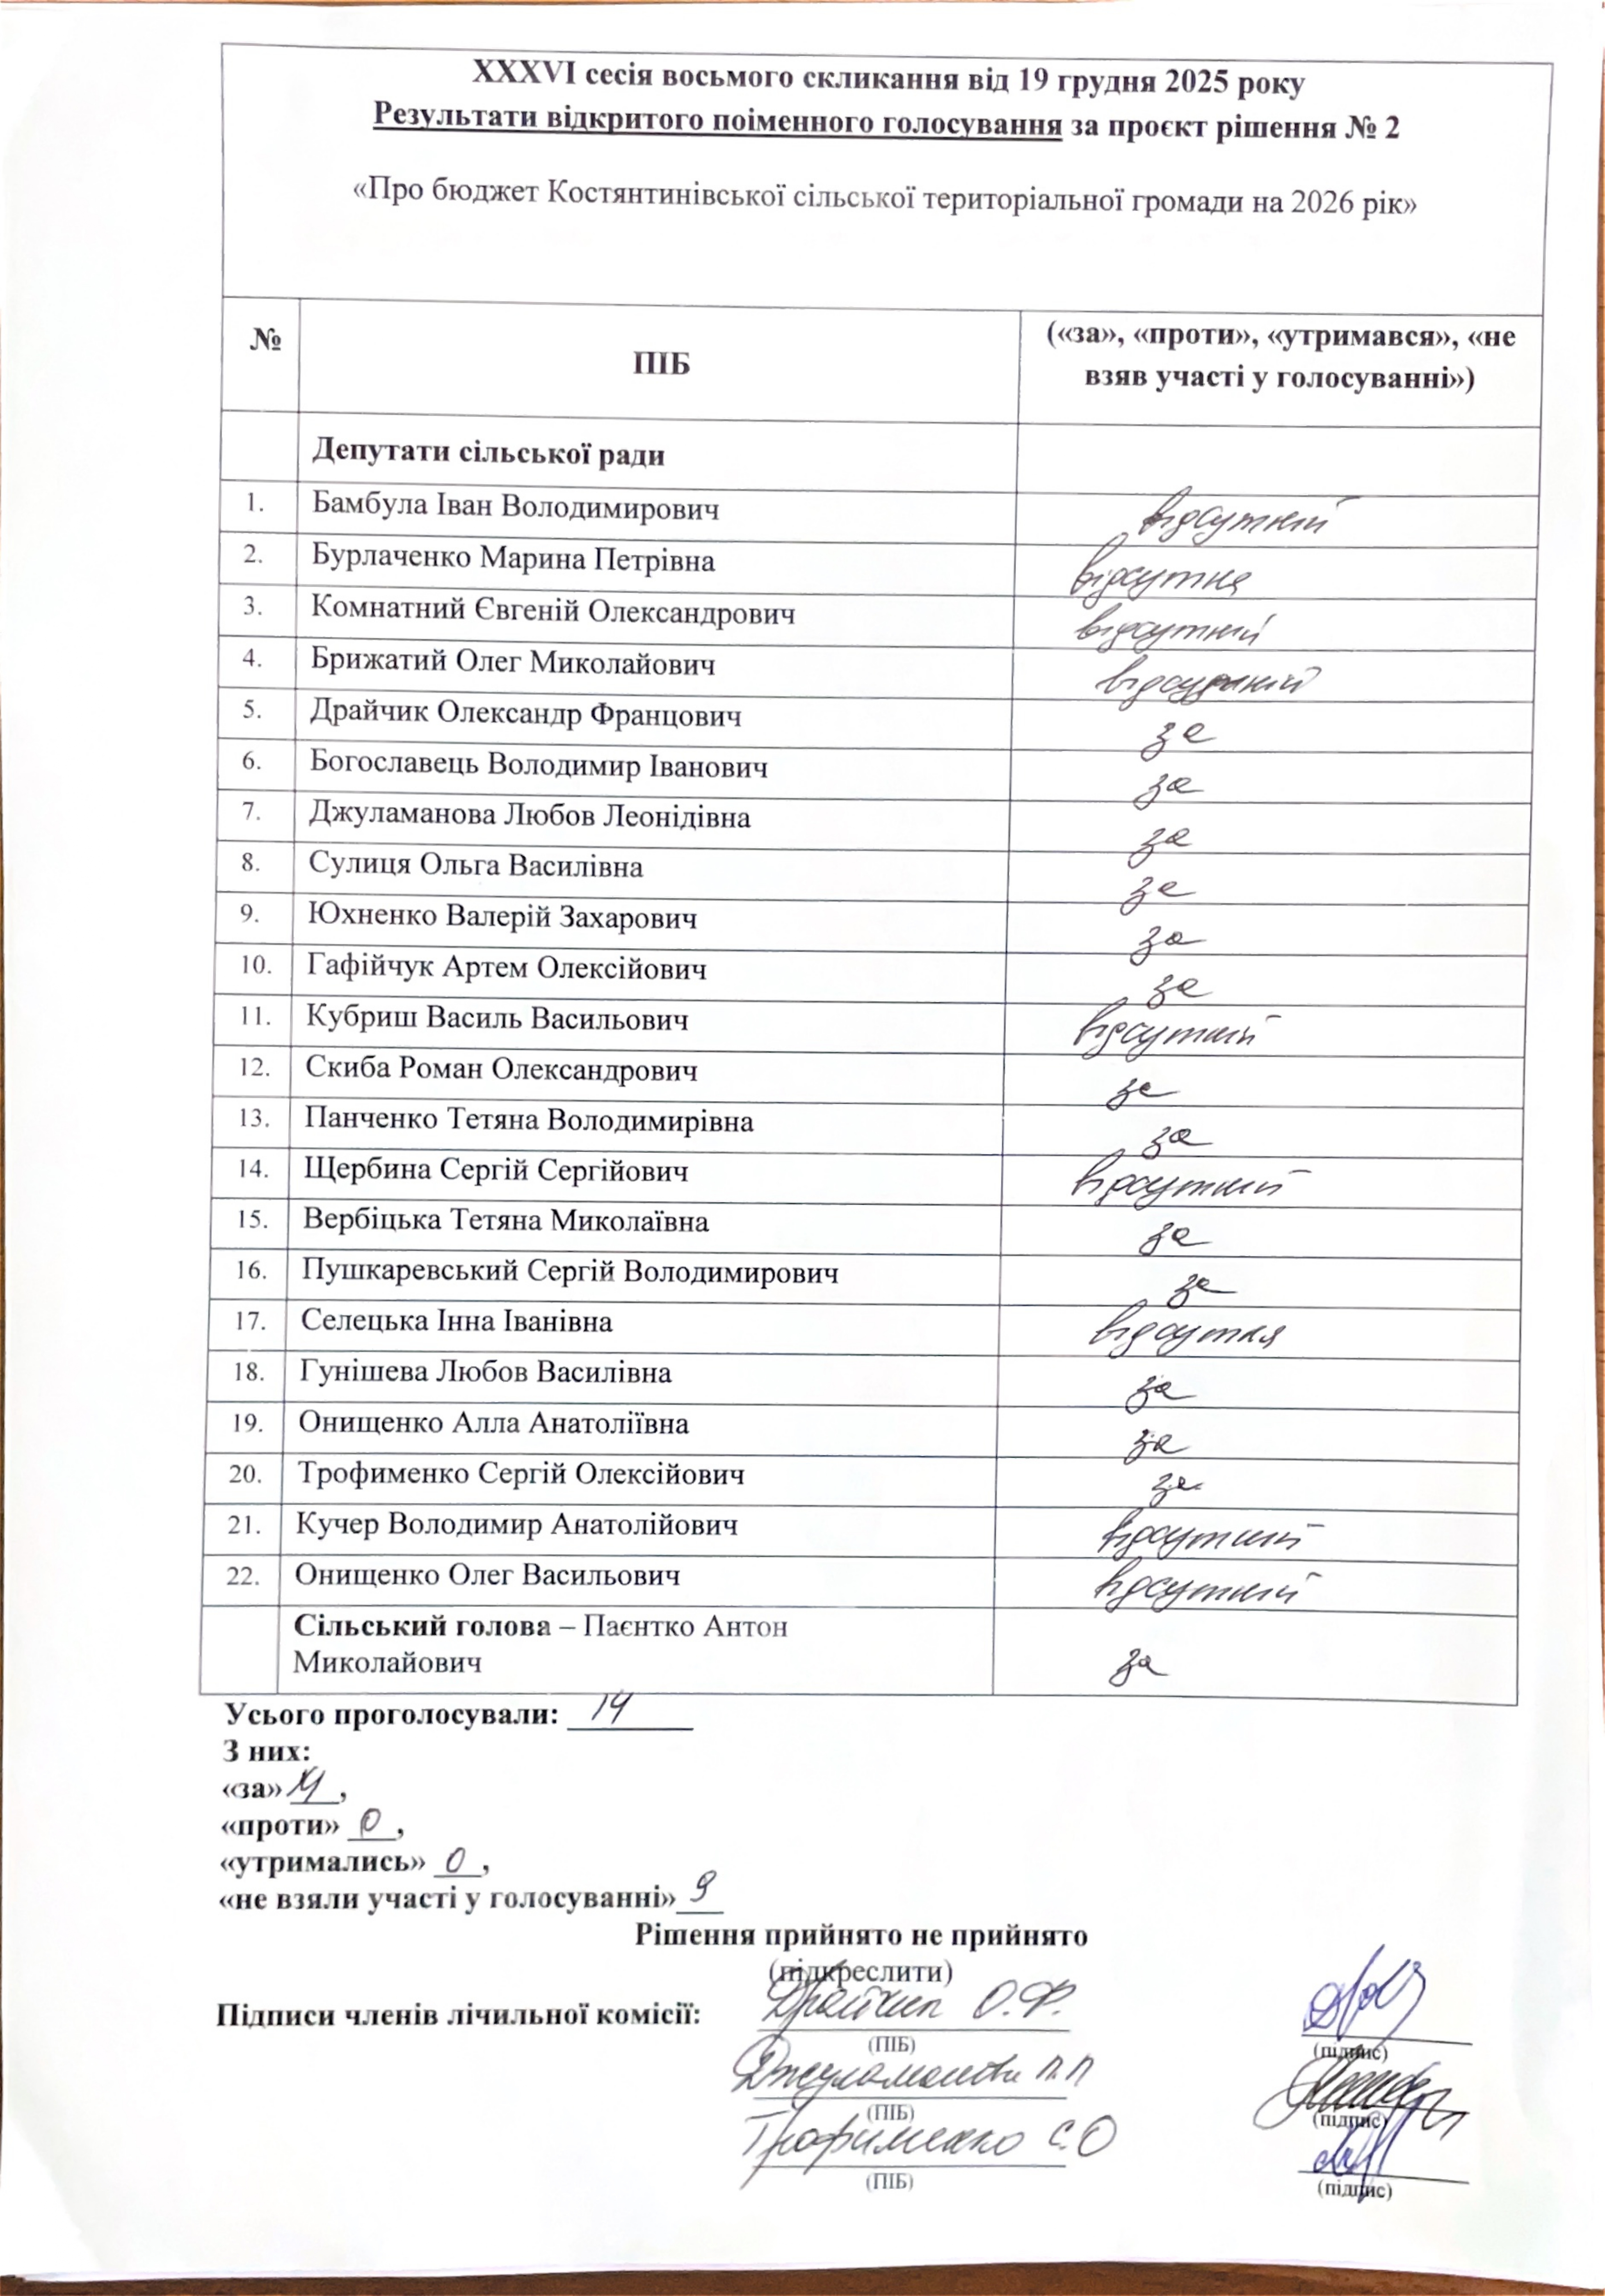 XXXVI сесія восьмого скликання від 19 грудня 2025 року
Результати відкритого поіменного голосування за проєкт рішення № 2
«Про бюджет Костянтинівської сільської територіальної громади на 2026 рік»
№ ПІБ («за», «проти», «утримався», «не взяв участі у голосуванні»)
Депутати сільської ради
1. Бамбула Іван Володимирович відсутній
2. Бурлаченко Марина Петрівна відсутня
3. Комнатний Євгеній Олександрович відсутній
4. Брижатий Олег Миколайович відсутній
5. Драйчик Олександр Францович за
6. Богославець Володимир Іванович за
7. Джуламанова Любов Леонідівна за
8. Сулиця Ольга Василівна за
9. Юхненко Валерій Захарович за
10. Гафійчук Артем Олексійович за
11. Кубриш Василь Васильович відсутній
12. Скиба Роман Олександрович за
13. Панченко Тетяна Володимирівна за
14. Щербина Сергій Сергійович відсутній
15. Вербіцька Тетяна Миколаївна за
16. Пушкаревський Сергій Володимирович за
17. Селецька Інна Іванівна відсутня
18. Гунішева Любов Василівна за
19. Онищенко Алла Анатоліївна за
20. Трофименко Сергій Олексійович за
21. Кучер Володимир Анатолійович відсутній
22. Онищенко Олег Васильович відсутній
Сільський голова – Паєнтко Антон
Миколайович за
Усього проголосували: 14
З них:
«за» 14,
«проти» 0,
«утримались» 0,
«не взяли участі у голосуванні» 9
Рішення прийнято не прийнято
(підкреслити)
Підписи членів лічильної комісії: Драйчик О.Ф.
(ПІБ) (підпис)
Джуламанова Л.Л
(ПІБ) (підпис)
Трофименко С.О
(ПІБ) (підпис)